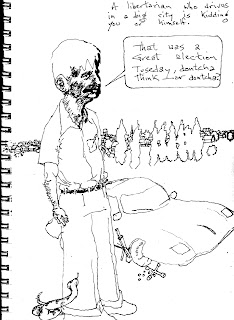 A libertarian who drives
in a big city is kidding
you or himself.
That was a
Great election
Tuseday, dontcha
Think _or dontcha?